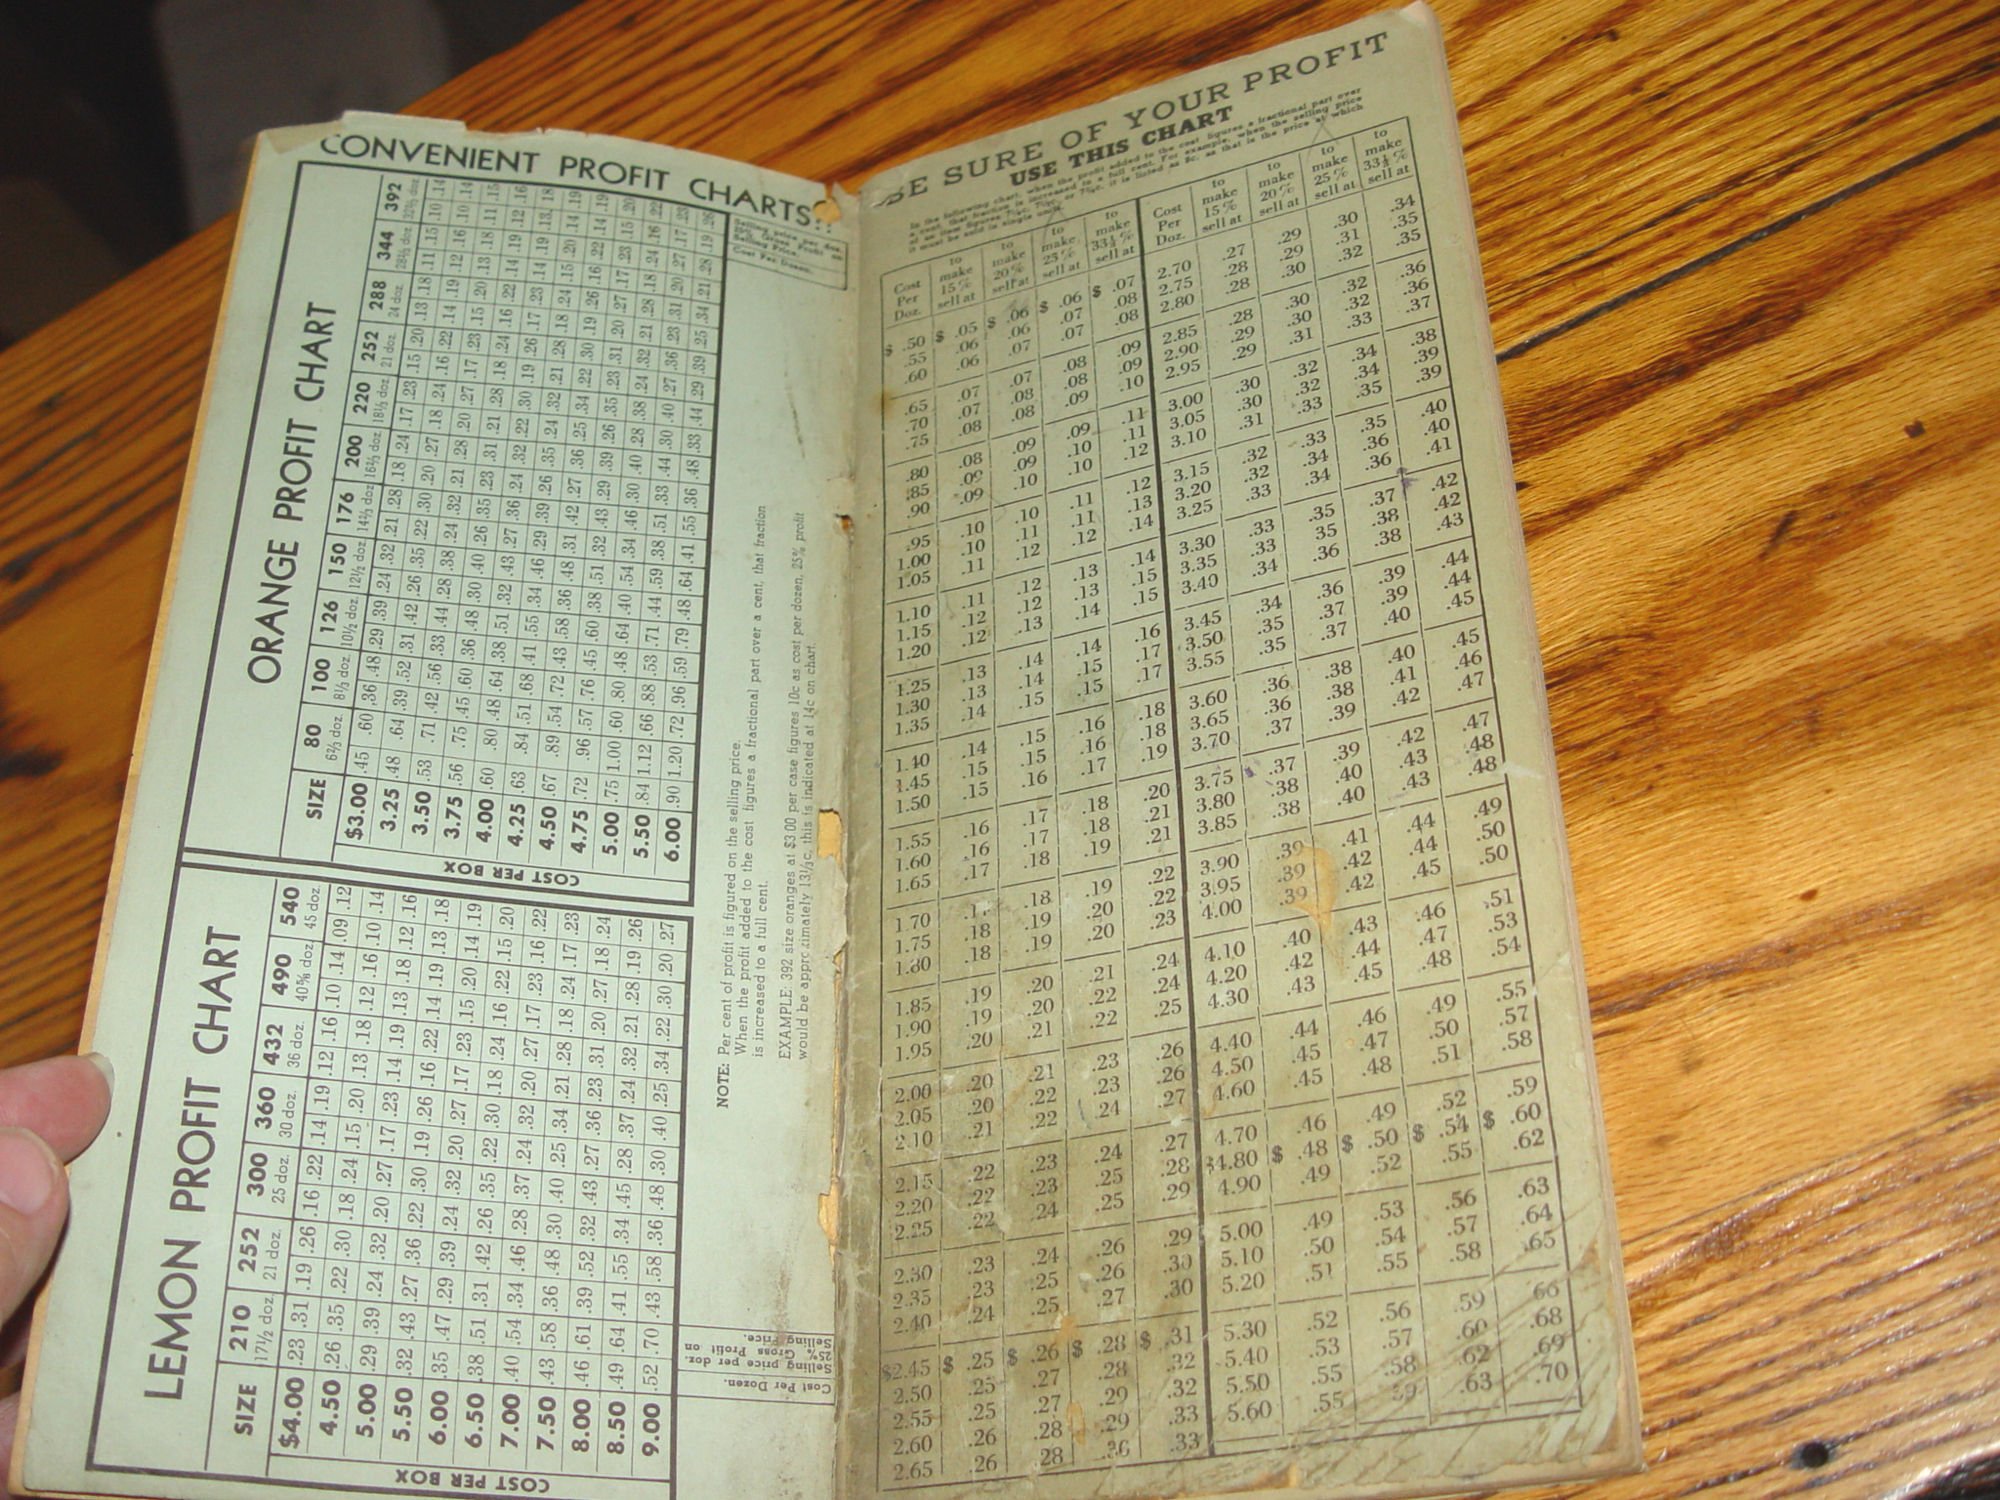 CONVENIENT PROFIT CHARTS
LEMON PROFIT CHART
SIZE 210 252 300 360 432 490 540
17½ doz. 21 doz. 25 doz. 30 doz. 36 doz. 40⅚ doz. 45 doz.
$4.00 .23 .31 .19 .26 .16 .22 .14 .19 .12 .16 .10 .14 .09 .12
4.50 .26 .35 .22 .30 .18 .24 .15 .20 .13 .18 .12 .16 .10 .14
5.00 .29 .39 .24 .32 .20 .27 .17 .23 .14 .19 .13 .18 .12 .16
5.50 .32 .43 .27 .36 .22 .30 .19 .26 .16 .22 .14 .19 .13 .18
6.00 .35 .47 .29 .39 .24 .32 .20 .27 .17 .23 .15 .20 .14 .19
6.50 .38 .51 .31 .42 .26 .35 .22 .30 .18 .24 .16 .22 .15 .20
7.00 .40 .54 .34 .46 .28 .37 .24 .32 .20 .27 .17 .23 .16 .22
7.50 .43 .58 .36 .48 .30 .40 .25 .34 .21 .28 .18 .24 .17 .23
8.00 .46 .61 .39 .52 .32 .43 .27 .36 .23 .31 .20 .27 .18 .24
8.50 .49 .64 .41 .55 .34 .45 .28 .37 .24 .32 .21 .28 .19 .26
9.00 .52 .70 .43 .58 .36 .48 .30 .40 .25 .34 .22 .30 .20 .27
COST PER BOX
Cost Per Dozen.
Selling price per doz.
25% Gross Profit on
Selling Price.
ORANGE PROFIT CHART
SIZE 80 100 126 150 176 200 220 252 288 344 392
6⅔ doz. 8⅓ doz. 10½ doz. 12½ doz. 14⅔ doz. 16⅔ doz. 18⅓ doz. 21 doz. 24 doz. 28⅔ doz. 32⅔ doz.
$3.00 .45 .60 .36 .48 .29 .39 .24 .32 .21 .28 .18 .24 .17 .23 .15 .20 .13 .18 .11 .15 .10 .14
3.25 .48 .64 .39 .52 .31 .42 .26 .35 .22 .30 .20 .27 .18 .24 .16 .22 .14 .19 .12 .16 .10 .14
3.50 .53 .71 .42 .56 .33 .44 .28 .38 .24 .32 .21 .28 .20 .27 .17 .23 .15 .20 .13 .18 .11 .15
3.75 .56 .75 .45 .60 .36 .48 .30 .40 .26 .35 .23 .31 .21 .28 .18 .24 .16 .22 .14 .19 .12 .16
4.00 .60 .80 .48 .64 .38 .51 .32 .43 .27 .36 .24 .32 .22 .30 .19 .26 .17 .23 .14 .19 .13 .18
4.25 .63 .84 .51 .68 .41 .55 .34 .46 .29 .39 .26 .35 .24 .32 .21 .28 .18 .24 .15 .20 .14 .19
4.50 .67 .89 .54 .72 .43 .58 .36 .48 .31 .42 .27 .36 .25 .34 .22 .30 .19 .26 .16 .22 .14 .19
4.75 .72 .96 .57 .76 .45 .60 .38 .51 .32 .43 .29 .39 .26 .35 .23 .31 .20 .27 .17 .23 .15 .20
5.00 .75 1.00 .60 .80 .48 .64 .40 .54 .34 .46 .30 .40 .28 .38 .24 .32 .21 .28 .18 .24 .16 .22
5.50 .84 1.12 .66 .88 .53 .71 .44 .59 .38 .51 .33 .44 .30 .40 .27 .36 .23 .31 .20 .27 .17 .23
6.00 .90 1.20 .72 .96 .59 .79 .48 .64 .41 .55 .36 .48 .33 .44 .29 .39 .25 .34 .21 .28 .19 .26
COST PER BOX
Selling price per doz.
25% Gross Profit on
Selling Price.
Cost Per Dozen.
NOTE: Per cent of profit is figured on the selling price.
When the profit added to the cost figures a fractional part over a cent, that fraction
is increased to a full cent.
EXAMPLE: 392 size oranges at $3.00 per case figures 10c as cost per dozen, 25% profit
would be approximately 13⅓c, this is indicated at 14c on chart.
BE SURE OF YOUR PROFIT
USE THIS CHART
In the following chart, when the profit added to the cost figures a fractional part over
a cent, that fraction is increased to a full cent. For example, when the selling price
of an item figures it is listed as 8c. as that is the price at which
it must be sold in single units.
Cost Per Doz. to make 15% sell at to make 20% sell at to make 25% sell at to make 33⅓% sell at
$ .50 $ .05 $ .06 $ .06 $ .07
.55 .06 .06 .07 .08
.60 .06 .07 .07 .08
.65 .07 .07 .08 .09
.70 .07 .08 .08 .09
.75 .08 .08 .09 .10
.80 .08 .09 .09 .11
.85 .09 .09 .10 .11
.90 .09 .10 .10 .12
.95 .10 .10 .11 .12
1.00 .10 .11 .11 .13
1.05 .11 .12 .12 .14
1.10 .11 .12 .13 .14
1.15 .12 .12 .13 .15
1.20 .12 .13 .14 .15
1.25 .13 .14 .14 .16
1.30 .13 .14 .15 .17
1.35 .14 .15 .15 .17
1.40 .14 .15 .16 .18
1.45 .15 .15 .16 .18
1.50 .15 .16 .17 .19
1.55 .16 .17 .18 .20
1.60 .16 .17 .18 .21
1.65 .17 .18 .19 .21
1.70 .18 .19 .22
1.75 .18 .19 .20 .22
1.80 .18 .19 .20 .23
1.85 .19 .20 .21 .24
1.90 .19 .20 .22 .24
1.95 .20 .21 .22 .25
2.00 .20 .21 .23 .26
2.05 .20 .22 .23 .26
2.10 .21 .22 .24 .27
2.15 .22 .23 .24 .27
2.20 .22 .23 .25 .28
2.25 .22 .24 .25 .29
2.30 .23 .24 .26 .29
2.35 .23 .25 .26 .30
2.40 .24 .25 .27 .30
$2.45 $ .25 $ .26 $ .28 $ .31
2.50 .25 .27 .28 .32
2.55 .25 .27 .29 .32
2.60 .26 .28 .29 .33
2.65 .26 .28 .33
Cost Per Doz. to make 15% sell at to make 20% sell at to make 25% sell at to make 33⅓% sell at
2.70 .27 .29 .30 .34
2.75 .28 .29 .31 .35
2.80 .28 .30 .32 .35
2.85 .28 .30 .32 .36
2.90 .29 .30 .32 .36
2.95 .29 .31 .33 .37
3.00 .30 .32 .34 .38
3.05 .30 .32 .34 .39
3.10 .31 .33 .35 .39
3.15 .32 .33 .35 .40
3.20 .32 .34 .36 .40
3.25 .33 .34 .36 .41
3.30 .33 .35 .37 .42
3.35 .33 35 .38 .42
3.40 .34 .36 .38 .43
3.45 .34 .36 .39 .44
3.50 .35 .37 .39 .44
3.55 .35 .37 .40 .45
3.60 .36 .38 .40 .45
3.65 .36 .38 .41 .46
3.70 .37 .39 .42 .47
3.75 .37 .39 .42 .47
3.80 .38 .40 .43 .48
3.85 .38 .40 .43 .48
3.90 .39 .41 .44 .49
3.95 .39 .42 .44 .50
4.00 .39 .42 .45 .50
4.10 .40 .43 .46 .51
4.20 .42 .44 .47 .53
4.30 .43 .45 .48 .54
4.40 .44 .46 .49 .55
4.50 .45 .47 .50 .57
4.60 .45 .48 .51 .58
4.70 .46 .49 .52 .59
$4.80 $ .48 $ .50 $ .54 $ .60
4.90 .49 .52 .55 .62
5.00 .49 .53 .56 .63
5.10 .50 .54 .57 .64
5.20 .51 .55 .58 .65
5.30 .52 .56 .59 .66
5.40 .53 .57 .60 .68
5.50 .55 .58 .62 .69
5.60 .55 .59 .63 .70